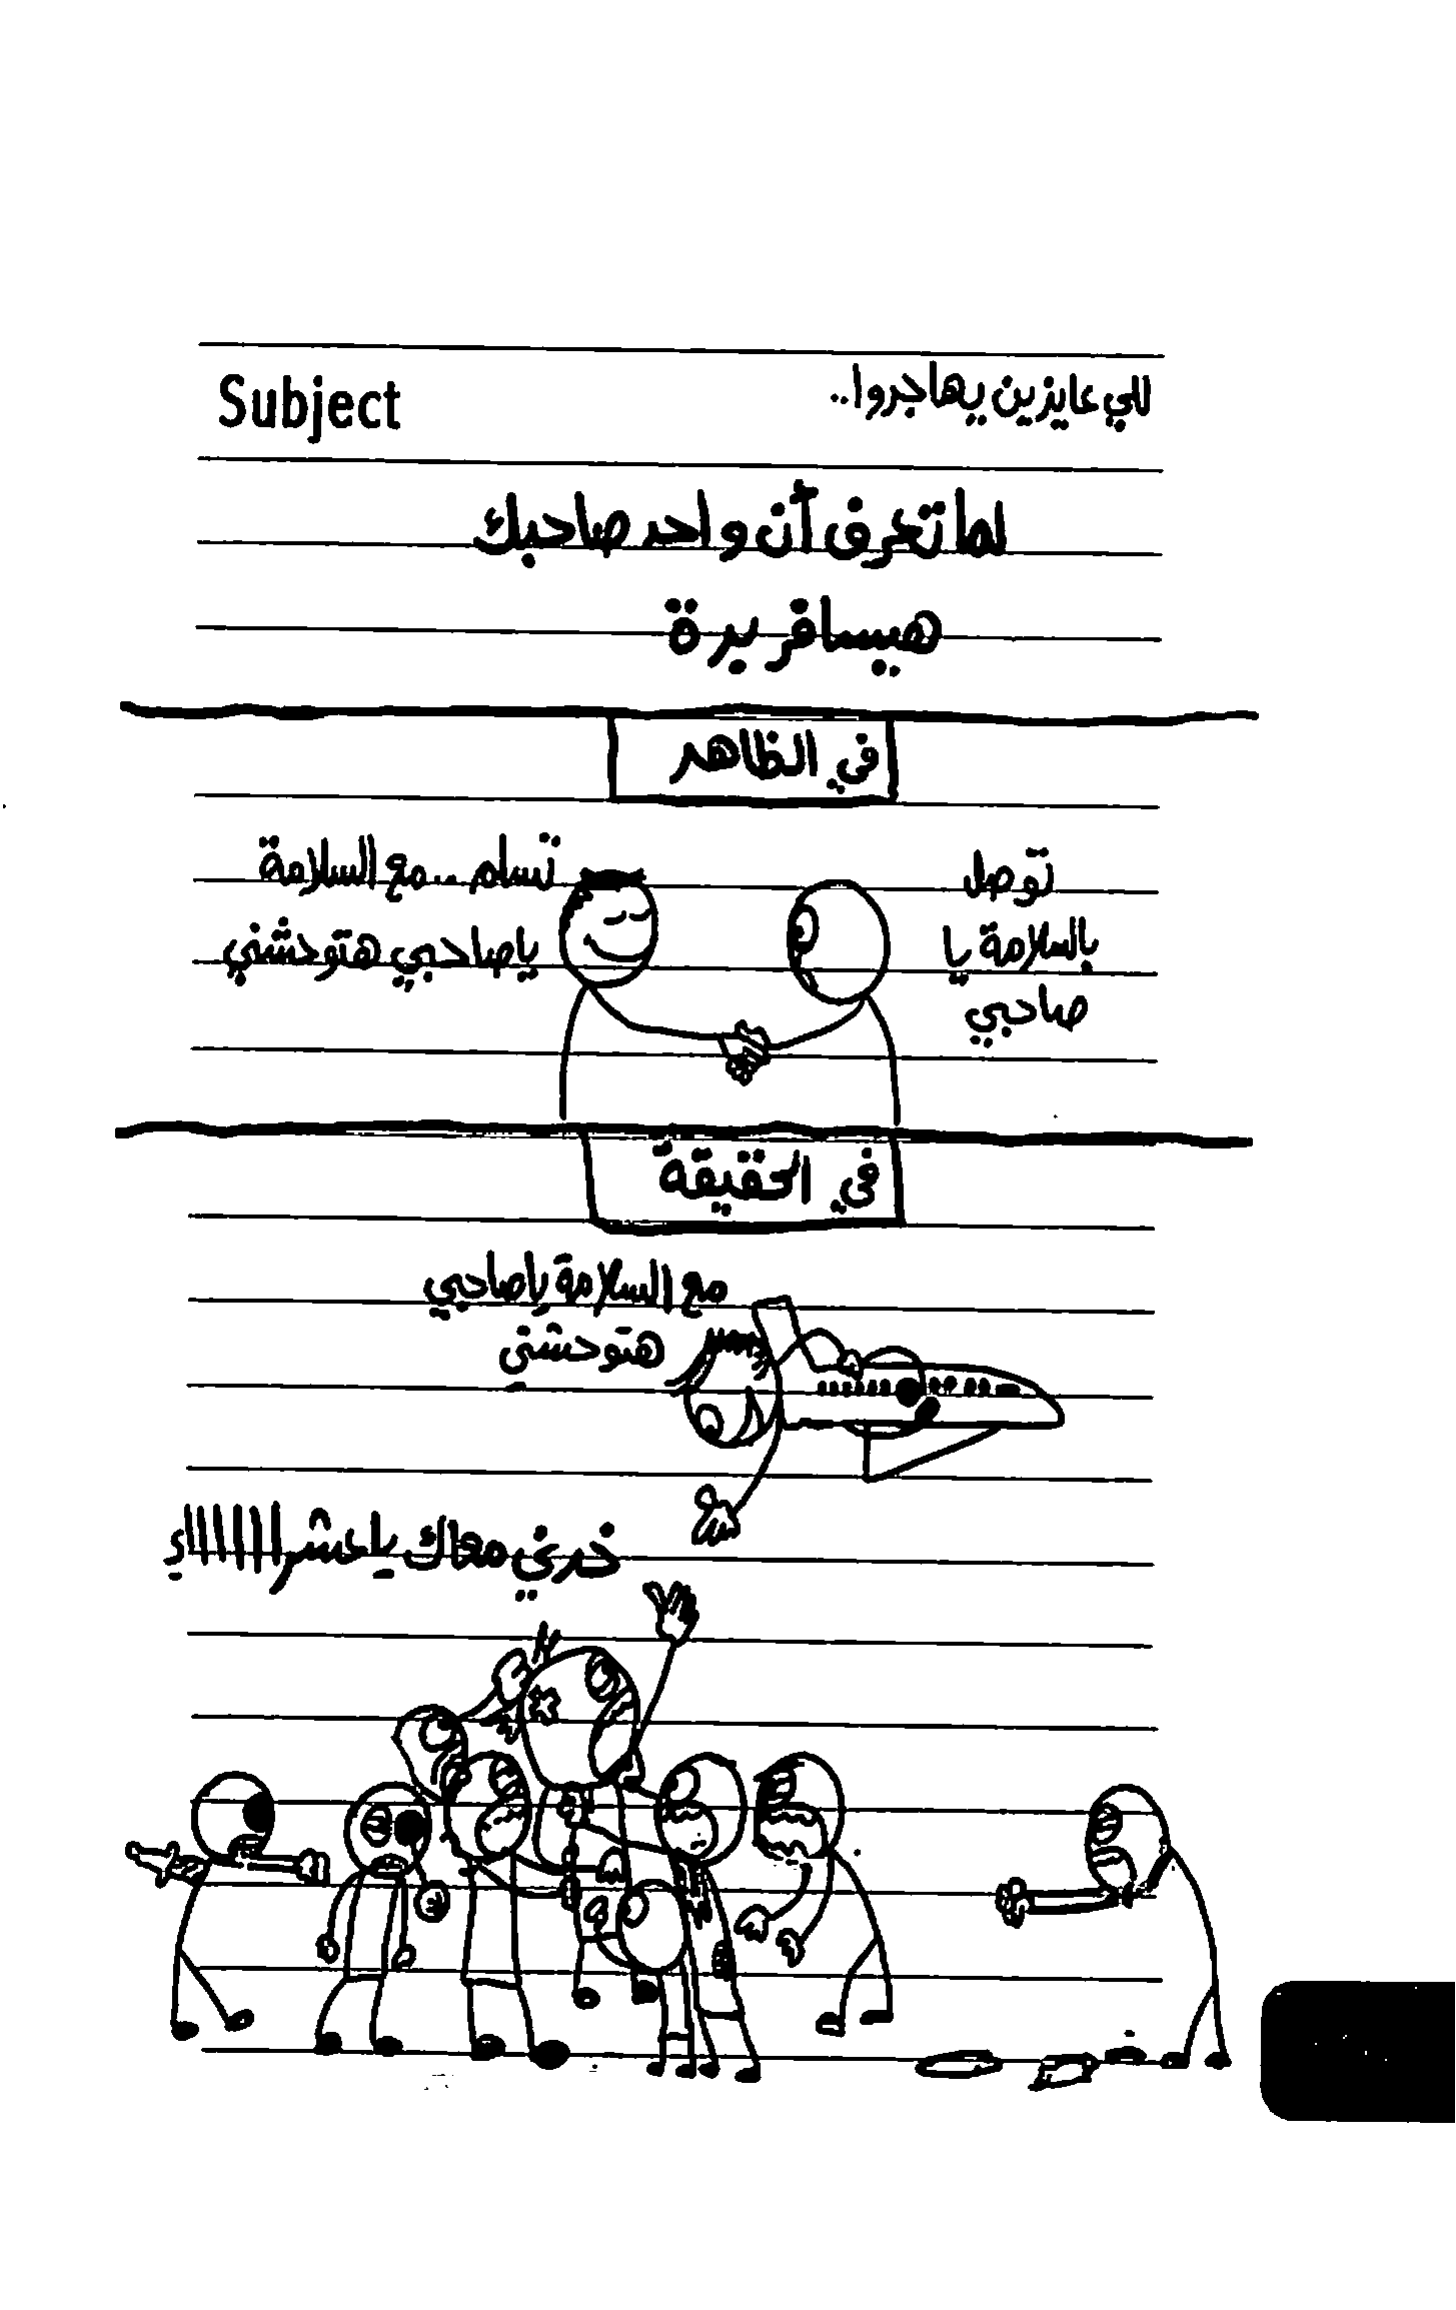 Subject
للي عايزين يهاجروا..
لما تعرف أن واحد صاحبك
هيسافر برة
في الظاهر
توصل
بالسلامة يا
صاحبي
تسلم .. مع السلامة
ياصاحبي هتوحشني
في الحقيقة
مع السلامة ياصاحبي
هتوحشني
خدني معاك يا